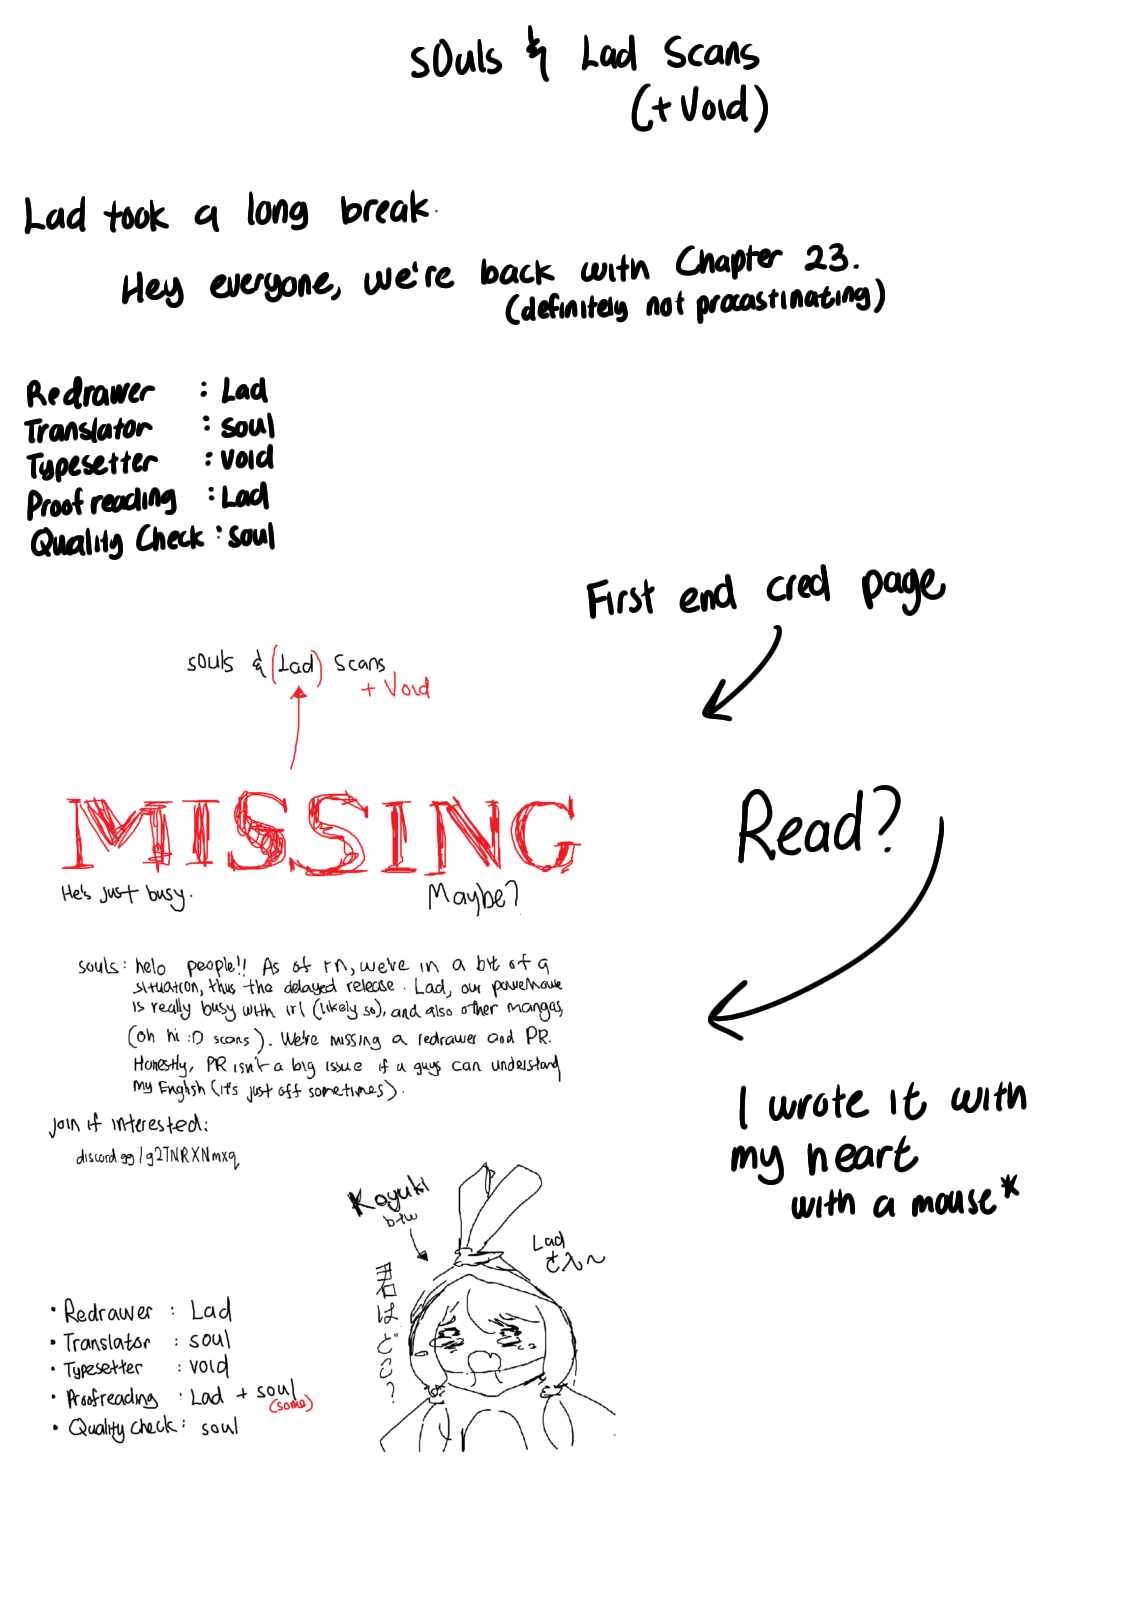 sOuls & Lad Scans
(+Void)
Lad took a long break.
Hey everyone, we're back with Chapter 23.
(definitely not procastinating)
Redrawer : Lad
Translator : soul
Typesetter : void
Proof reading : Lad
Quality Check : soul
First end cred page
sOuls & (Lad) Scans
+ Void
MISSING
He's just busy.
Maybe?
Read?
souls: helo people!! As of rn, we've in a bit of a
situation, thus the delayed release. Lad, our powerhouse
is really busy with irl (likely so), and also other mangas,
(oh hi :D scans). We're missing a redrawer and PR.
Honestly, PR isn't a big issue if a guys can understand
my English (it's just off sometimes).
Join if interested:
discord gg/g2TNRXNmxq
I wrote it with
my heart
with a mouse*
Koyuki
btw
Lad
さん～
はどこ?
• Redrawer : Lad
• Translator : soul
• Typesetter : void
• Proofreading : Lad + soul
(some)
• Quality check : soul